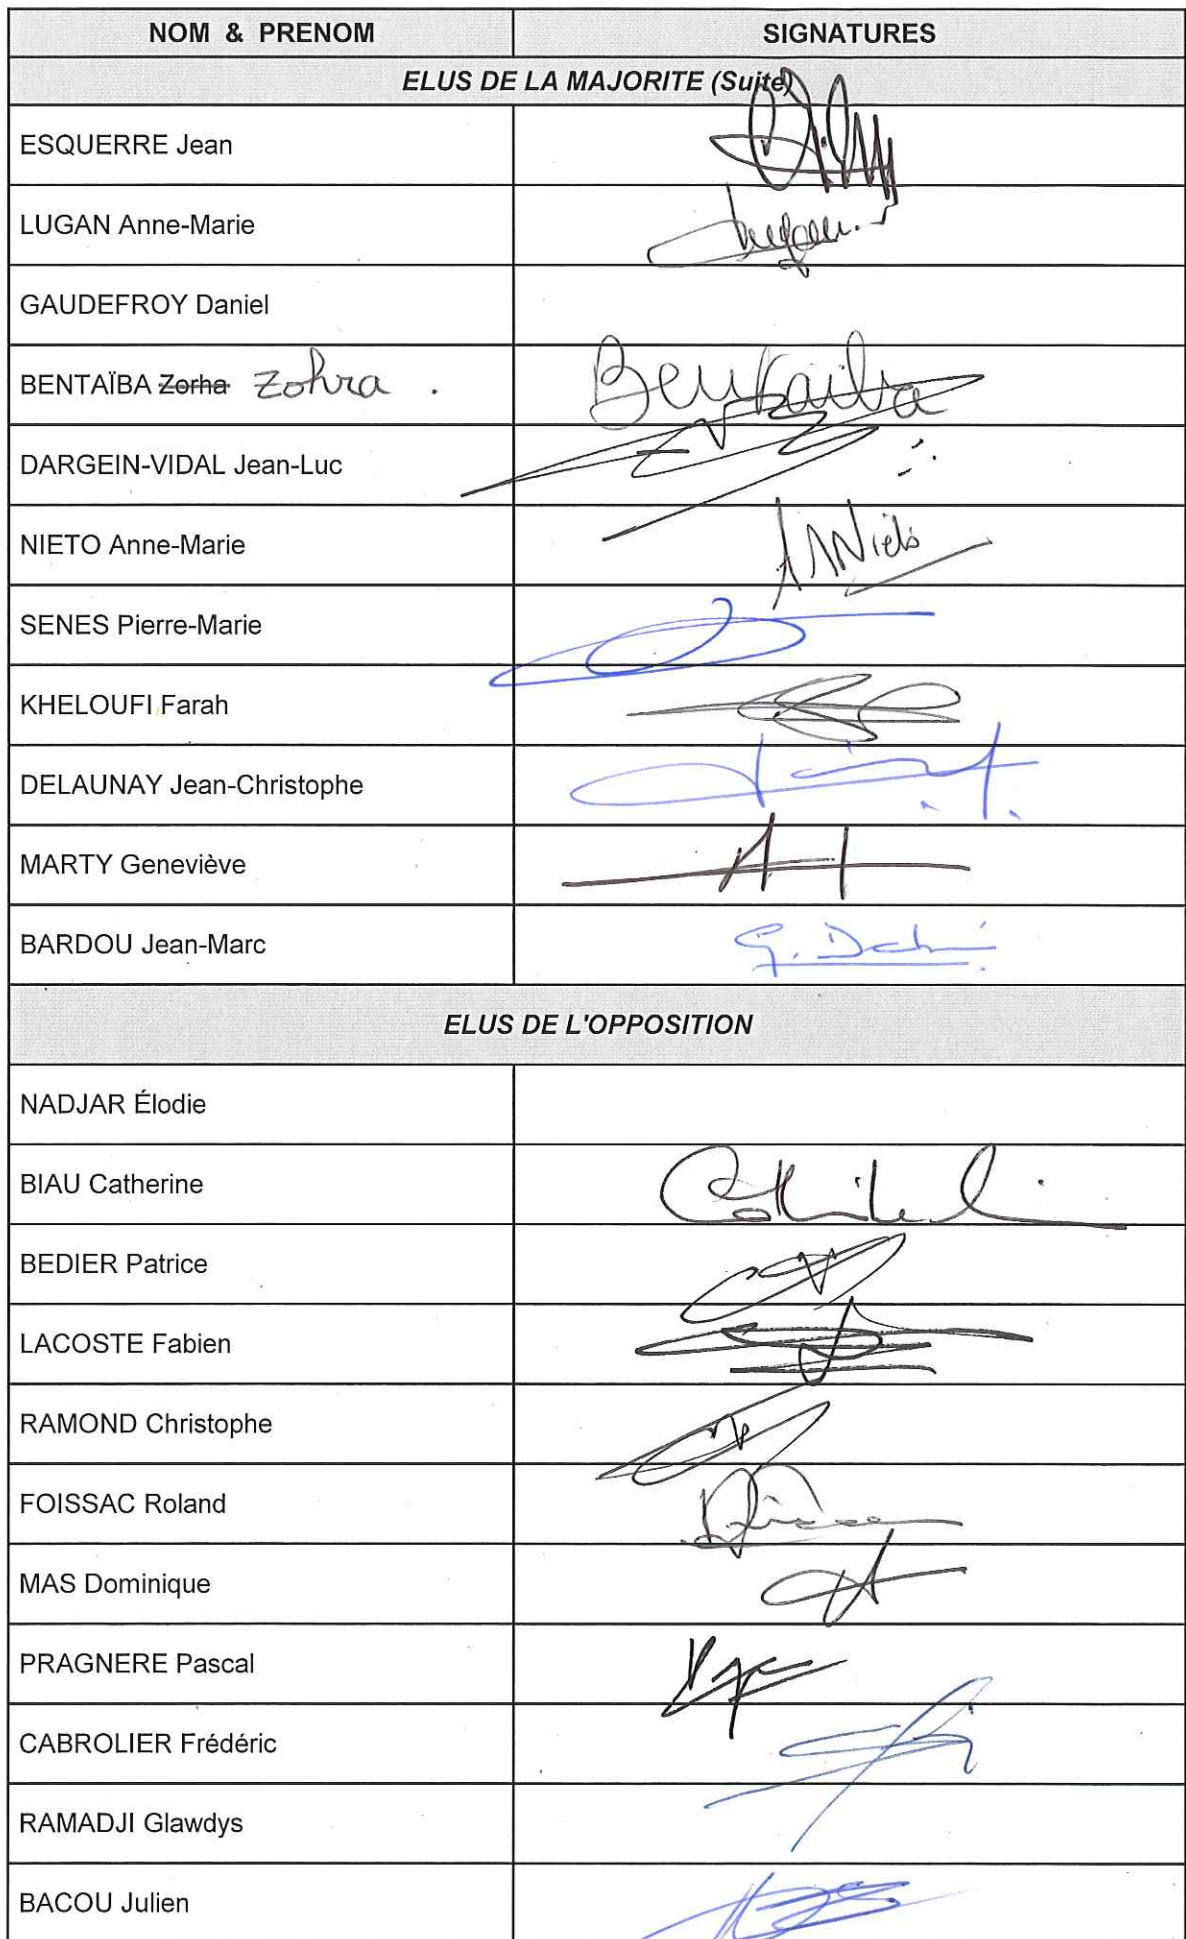 NOM & PRENOM SIGNATURES
ELUS DE LA MAJORITE (Suite)
ESQUERRE Jean
LUGAN Anne-Marie Lugan
GAUDEFROY Daniel
BENTAÏBA Zorha Zohra . Bentaiba
DARGEIN-VIDAL Jean-Luc
NIETO Anne-Marie AMNieto
SENES Pierre-Marie
KHELOUFI Farah
DELAUNAY Jean-Christophe
MARTY Geneviève
BARDOU Jean-Marc
ELUS DE L'OPPOSITION
NADJAR Élodie
BIAU Catherine
BEDIER Patrice
LACOSTE Fabien
RAMOND Christophe
FOISSAC Roland
MAS Dominique
PRAGNERE Pascal
CABROLIER Frédéric
RAMADJI Glawdys
BACOU Julien